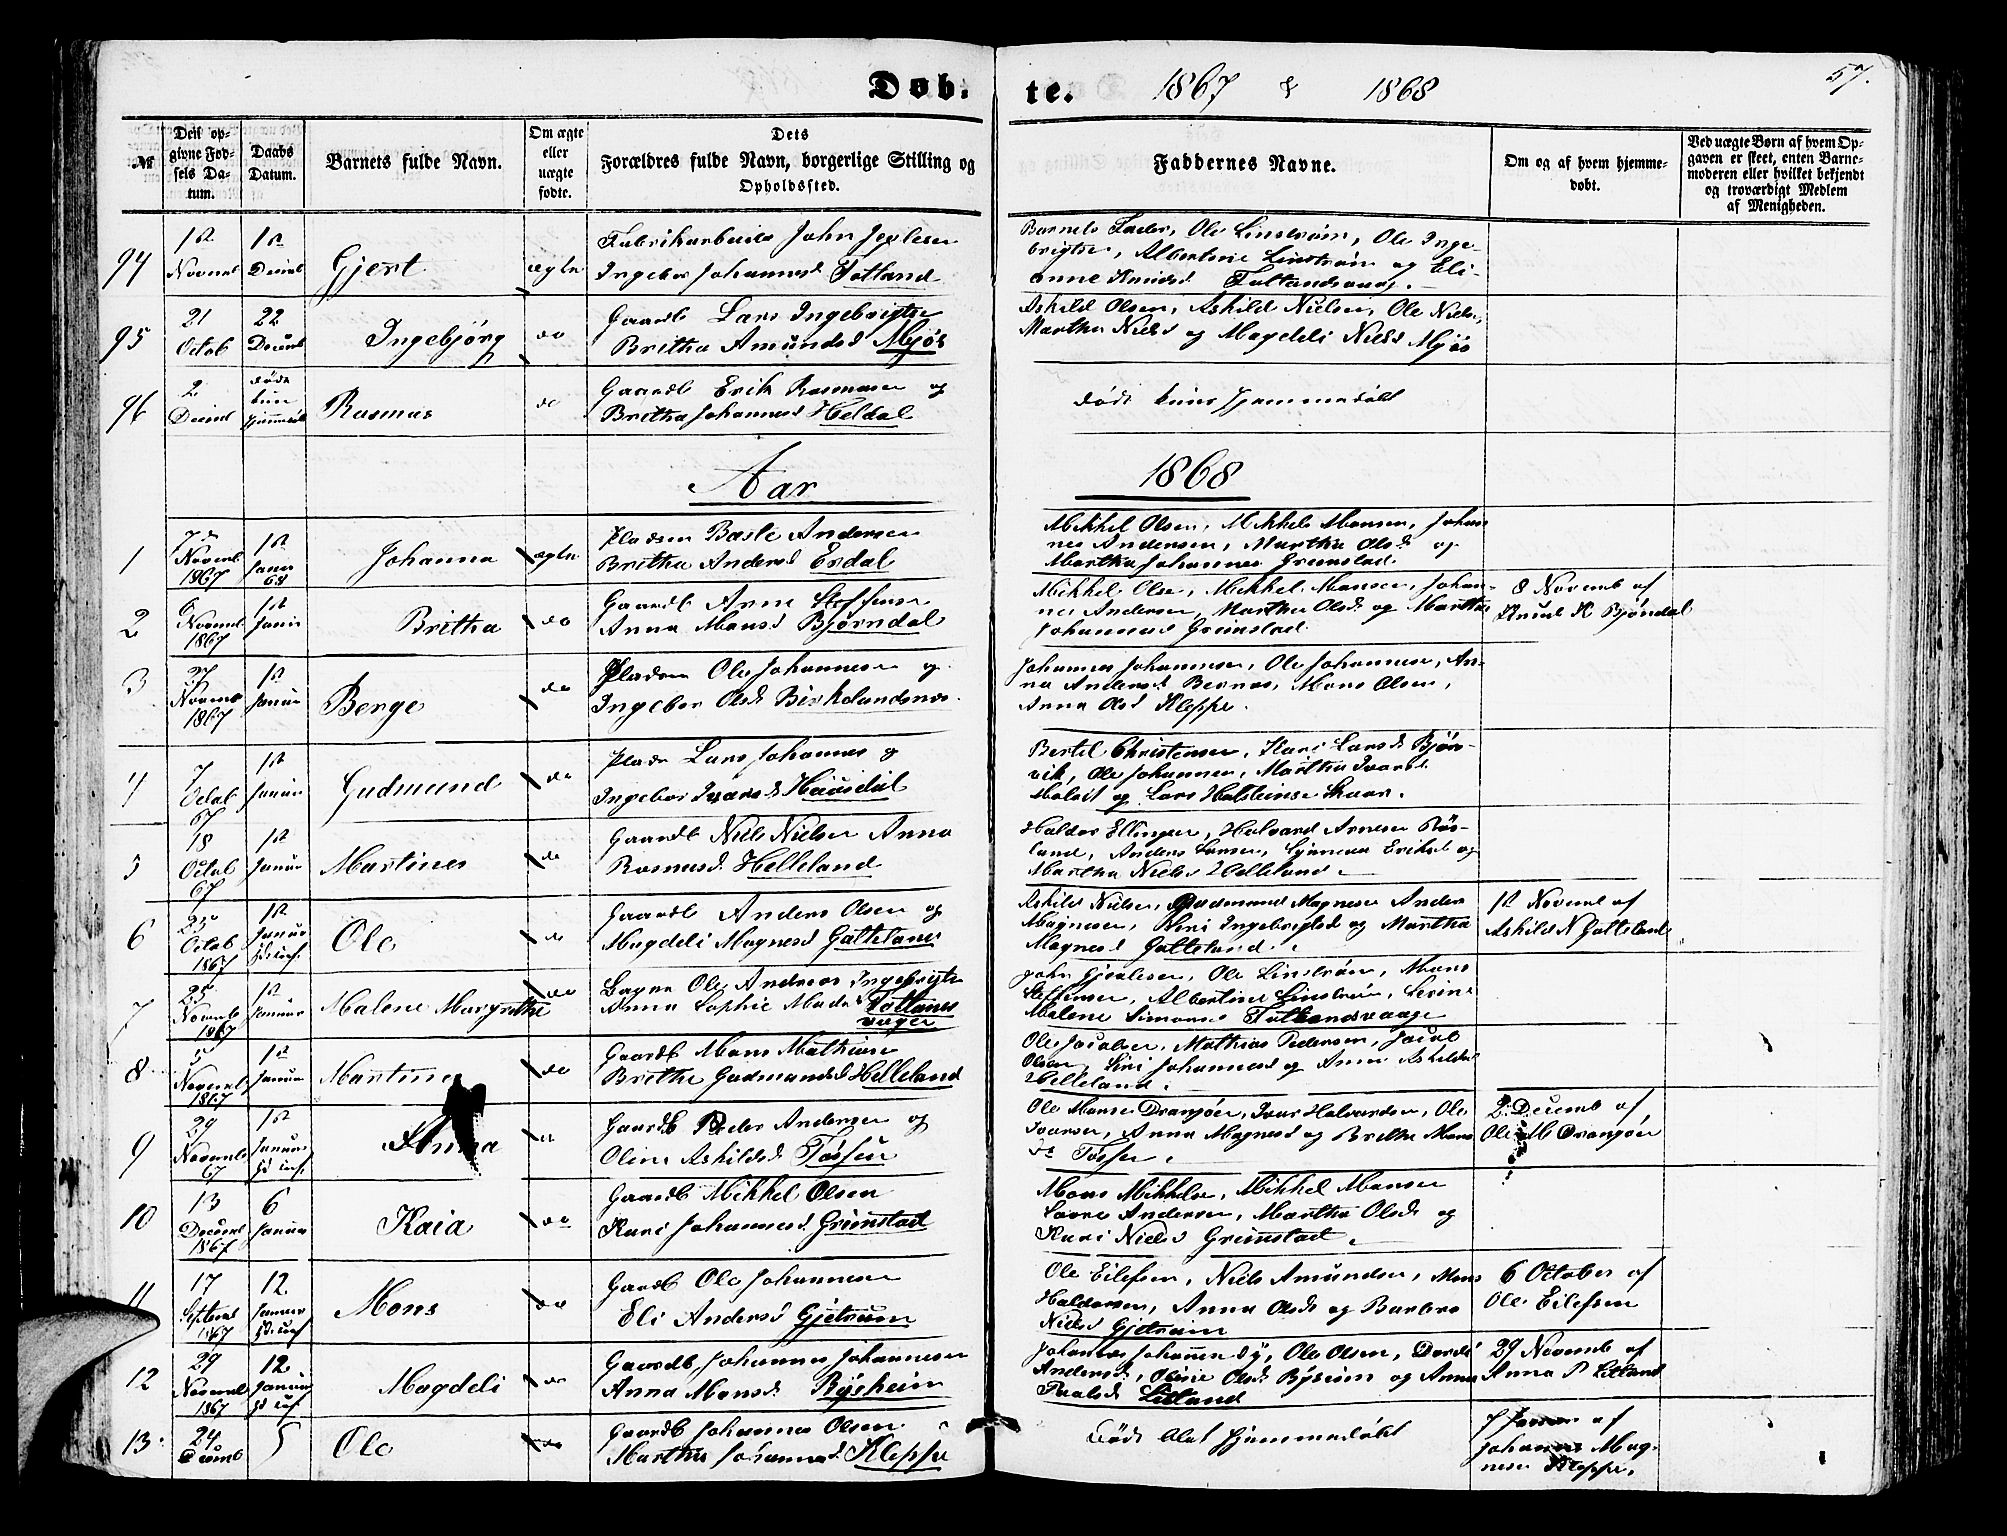 Døb-
te.
1867 & 1868
57.
No
Den op-
givne Fød-
sels Da-
tum.
Daabs
Datum.
Barnets fulde Navn.
Om ægte
eller
uægte
fødte.
Dets
Forældres fulde Navn, borgerlige Stilling og
Opholdssted.
Faddernes Navne.
Om og af hvem hjemme-
døbt.
Ved uægte Børn af hvem Op-
gaven er skeet, enten Barne-
moderen eller hvilket bekjendt
og troværdigt Medlem
af Menigheden.
94
1st
Novemb
1st
Decemb
Gjert
ægte
Fabrikarbeider John
Ingebor Johannesd Totland
Barnets Fader, Ole Linstrøm, Ole Inge-
brigtsen, Albertine Linstrøm og Eli-
anne
95
21
Octob
22
Decemb
Ingebjørg
do
Gaardb Lars Ingebrigtsen
Britha Amundsd Mjøs
Askild Olsen, Askild Nielsen, Ole Nielsen,
Martha Nielsd og Magdeli Nielsd Mjøs
96
2
Decemb
døde
kun
hjemmedøbt
Rasmus
do
Gaardb Erik Rasmusen og
Britha Johannesd Heldal
døde kuns hjemmedøbt
Aar
1868
1
7de
Novemb
1867
1st
Januar
68
Johanna
ægte
Pladsm Baste Andersen
Britha Andersd Exdal
Mikkel Olsen, Mikkel Monsen, Johan-
nes Andersen, Martha Olsd og
Martha Johannesd Grimstad
2
6
Novemb
1867
1st
Januar
Britha
do
Gaardb Arne Steffensen
Anna Monsd Bjørndal
Mikkel Olsen, Mikkel Monsen, Johan-
nes Andersen, Martha Olsd og Martha
Johannesd Grimstad
8 Novemb af
Knud K Bjøndal
3
27
Novemb
1867
1st
Januar
Berge
do
Pladsm Ole Johannesen og
Ingebor Olsd Birkelandsnes
Johannes Johannesen, Ole Johannesen, An-
na Andersd Bernes, Mons Olsen,
Anna Olsd Kleppe.
4
7
Octob
67
1st
Januar
Gudmund
do
Pladsm Lars Johannes og
Ingebor Ivarsd Haüsdal
Bertel Christensen, Kari Larsd Bjørs-
vik, Ole Johannesen, Martha Ivarsd
og Lars Halsteinsen Skaar.
5
18
Octob
67
1st
Januar
Martines
do
Gaardb Niels Nielsen Anna
Rasmusd Helleland
Haldor Ellingsen, Halvard Arnesen Røs-
land, Anders Larsen, Eriksd og
Martha Nielsd Helleland.
6
25
Octob
1867
1st
Januar
Ole
do
Gaardb Anders Olsen og
Magdeli Magnesd Gåtteland
Askild Nielsen, Gudmund Magnesen Anders
Magnesen, Siri Ingebrigtsd og Martha
Magnesd Gatteland.
1st Novemb af
Askild N Gatteland
7
25
Novemb
1867
1st
Januar
Malene Margrethe
do
Ole Andreas Ingebrigtsen
Anna Sophie Totlands
vager
John Gjertsen, Ole Linstrøm, Mons
Steffensen, Albertine Linstrøm,
Malene Simonsd Totlandsvaage
8
5
Novemb
1867
1st
Januar
Martines
do
Gaardb Mons Mathiesen
Brithe Gudmundsd Helleland
Ole Jacobsen, Mathias Pedersen, Jacob
Olsen, Siri Johannesd og Anna Askildsd
Helleland.
9
29
Novemb
67
1st
Januar
Anna
Gaardb Peder Andersen og
Oline Askildsd Tøsse
Ole Monsen Drangøen, Ivar Halvardsen, Ole
Ivarsen, Anna Magnesd og Britha Mons
d Tøsse.
2 Decemb af
Ole M Drangøen
10
13
Decemb
1867
6
Januar
Kaia
do
Gaardb Mikkel Olsen
Kari Johannesd Grimstad
Mons Mikkelsen, Mikkel Monsen
Andersen, Martha Olsd og
Kari Nielsd Grimstad.
11
17
Septemb
1867
12
Januar
Mons
do
Gaardb Ole Johannesen
Eli Andersd Gjetrum
Ole Eilefsen, Niels Amundsen, Mons
Haldorsen, Anna Olsd og Barbro
Nielsd Gjetrum
6 October af
Ole Eilefsen
12
29
Novemb
1867
12
Januar
Magdeli
do
Gaardb Johannes Johannesen
Anna Monsd Røseheim
Johannes Johannesen Ole Olsen, Dordei
Andersd, Oline Olsd og Anna
Paalsd Litland
29 Novemb af
Anna P Litland
13
24
Decemb
5
Ole
do
Gaardb Johannes Olsen
Martha Johannesd Kleppe
Død blot hjemmedøbt
7 Januar af
Johannes Mag-
nesen Kleppe.